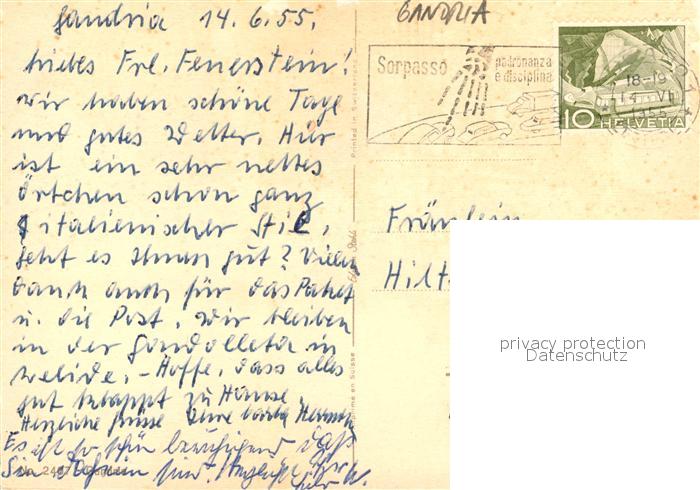 Gandria 14.6.55.
Liebes Frl. Feuerstein!
Wir haben schöne Tage
und gutes Wetter. Hier
ist ein sehr nettes
Örtchen schon ganz
italienischer Stil,
geht es Ihnen gut? Vielen
Dank auch für das Paket
u. die Post. Wir bleiben
in der Gondoletta in
- Hoffe, dass alles
gut klappt zu Hause.
Herzliche Grüsse Ihre
Es ist so schön beruhigend, dass
Sie sind. Herzlichst Ihr
GANDRIA
Sorpasso
padronanza
e disciplina
18-19
14. VI
1955
10 HELVETIA
Printed in Switzerland
Imprimé en Suisse
Fräulein
Hilt
privacy protection
Datenschutz
No. 2487